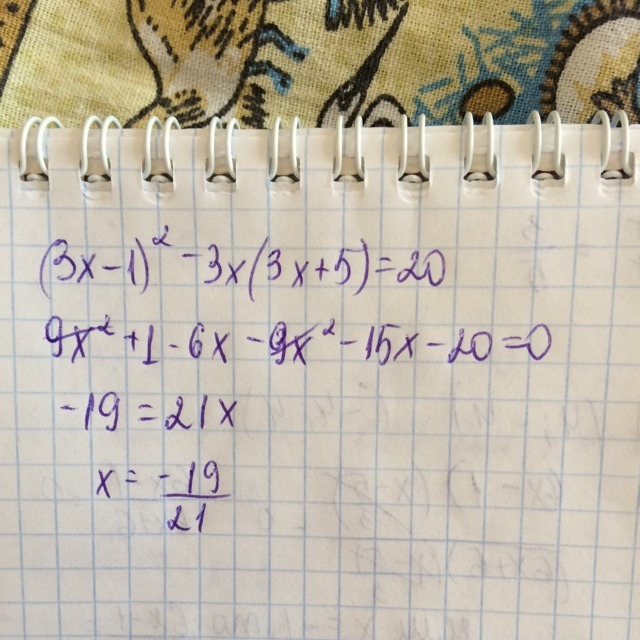 (3x-1)² -3x(3x+5)=20
9x² +1-6x-9x²-15x-20=0
-19=21x
x= -19/21